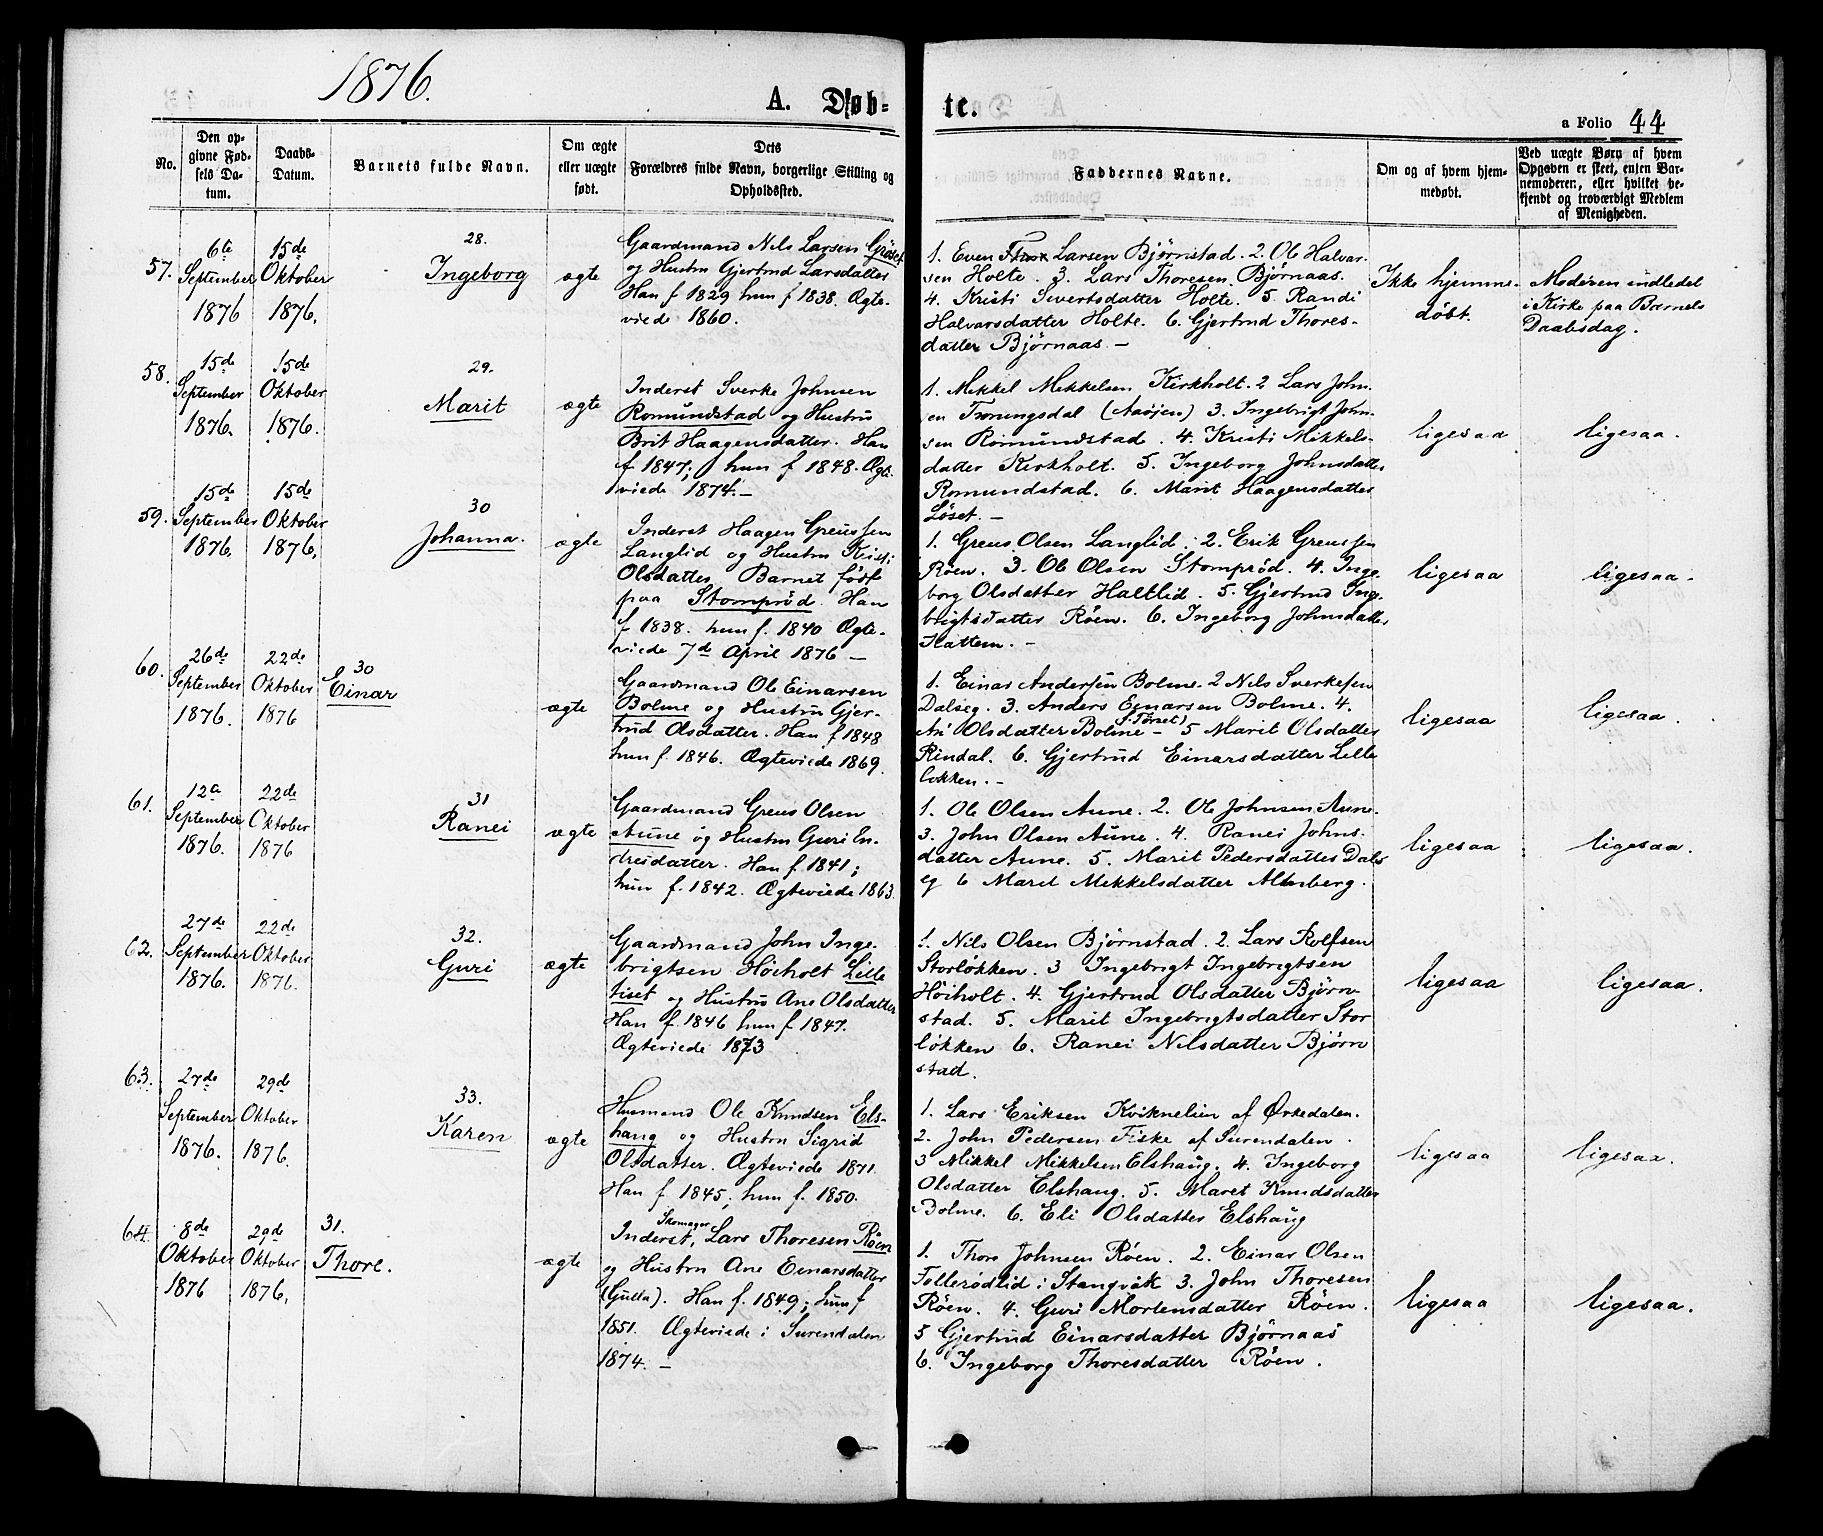 1876.
A. Døb-
te.
a Folio 44
No.
Den op-
givne Fød-
sels Da-
tum.
Daabs-
Datum.
Barnets fulde Navn.
Om ægte
eller uægte
født.
Dets
Forældres fulde Navn, borgerlige Stilling og
Opholdssted.
Faddernes Navne.
Om og af hvem hjem-
medøbt.
Ved uægte Børn af hvem
Opgaven er skeet, enten Bar-
nemoderen, eller hvilket be-
kjendt og troværdigt Medlem
af Menigheden.
57.
6te
September
1876
15de
Oktober
1876.
28.
Ingeborg
ægte
Gaardmand Nils Larsen Grøset
og Hustru Gjertrud Larsdatter
Han f 1829 hun f 1838. Ægte-
viede 1860.
1. Even Larsen Bjørnstad. 2. Ole Halvar-
sen Holte. 3. Lars Thoresen Bjørnaas.
4. Kristi Sivertsdatter Holte. 5. Randi
Halvarsdatter Holte. 6. Gjertrud Thores-
datter Bjørnaas. -
Ikke hjemme-
døbt.
Moderen indledet
i Kirke paa Barnets
Daabsdag.
58.
15de
September
1876.
15de
Oktober
1876.
29.
Marit
ægte
Inderst Sverke Johnsen
Romundstad og Hustru
Brit Haagensdatter. Han
f 1847; hun f 1848. Ægte-
viede 1874. -
1. Mikkel Mikkelsen Kirkholt. 2 Lars John-
sen Tronungsdal (Aasjen) 3. Ingebrigt John-
sen Romundstad. 4. Kristi Mikkels-
datter Kirkholt. 5. Ingeborg Johnsdatter
Romundstad. 6. Marit Haagensdatter
Løset. -
ligesaa
ligesaa.
59.
15de
September
1876.
15de
Oktober
1876.
30
Johanna.
ægte
Inderst Haagen Greussen
Langlid og Hustru Kristi
Olsdatter. Barnet født
paa Stomprød. Han
f 1838. hun f. 1840 Ægte-
viede 7de April 1876 -
1. Greus Olsen Langlid. 2. Erik Greussen
Røen. 3. Ole Olsen Stomprød. 4. Inge-
borg Olsdatter Haltlid. 5. Gjertrud Inge-
brigtsdatter Røen. 6. Ingeborg Johnsdatter
Hattem. -
ligesaa
ligesaa.
60.
26de
September
1876.
22de
Oktober
1876
30
Einar
ægte
Gaardmand Ole Einarsen
Bolme og Hustru Gjer-
trud Olsdatter. Han f 1848
hun f. 1846. Ægteviede 1869.
1. Einar Andersen Bolme. 2 Nils Sverkesen
Dalseg. 3. Anders Einarsen Bolme. 4.
(Tørset)
An Olsdatter Bolme - 5 Marit Olsdatter
Rindal. 6. Gjertrud Einarsdatter Lille
løkken. -
ligesaa
ligesaa.
61.
12te
September
1876.
22de
Oktober
1876
31
Ranei
ægte
Gaardmand Greus Olsen
Aune og Hustru Guri En-
dresdatter. Han f. 1841;
hun f. 1842. Ægteviede 1863.
1. Ole Olsen Aune. 2. Ole Johnsen Aune.
3. John Olsen Aune. 4. Ranei Johns-
datter Aune. 5. Marit Pedersdatter Dals
eg 6 Marit Mikkelsdatter Almberg.
ligesaa
ligesaa.
62.
27de
September
1876.
22de
Oktober
1876.
32.
Guri
ægte
Gaardmand John Inge-
brigtsen Høiholt Lille
tiset og Hustru Ane Olsdatter
Han f. 1846 hun f 1847.
Ægteviede 1873
1. Nils Olsen Bjørnstad. 2. Lars Rolfsen
Storløkken. 3 Ingebrigt Ingebrigtsen
Høiholt. 4. Gjertrud Olsdatter Bjørn-
stad. 5. Marit Ingebrigtsdatter Stor
løkken 6. Ranei Nilsdatter Bjørn
stad.
ligesaa
ligesaa.
63.
27de
September
1876.
29de
Oktober
1876.
33.
Karen
ægte
Husmand Ole Knudsen Els-
haug og Hustru Sigrid
Olsdatter. Ægteviede 1871.
Han f 1845; hun f. 1850.
1. Lars Eriksen Kviknelien af Ørkedalen.
2. John Pedersen Fiske af Surendalen.
3 Mikkel Mikkelsen Elshaug. 4. Ingeborg
Olsdatter Elshaug. 5. Maret Knudsdatter
Bolme. 6. Eli Olsdatter Elshaug
ligesaa
ligesaa.
64.
8de
Oktober
1876
29de
Oktober
1876.
31.
Thore.
ægte
Skomager
Inderst, Lars Thoresen Røen
og Hustru Ane Einarsdatter
(Gulla). Han f. 1849; hun f
1851. Ægteviede i Surendalen
1874. -
1. Thore Johnsen Røen. 2. Einar Olsen
Follerødlid i Stangvik 3. John Thoresen
Røen. 4. Guri Mortensdatter Røen.
5 Gjertrud Einarsdatter Bjørnaas
6. Ingeborg Thoresdatter Røen.
ligesaa
ligesaa.